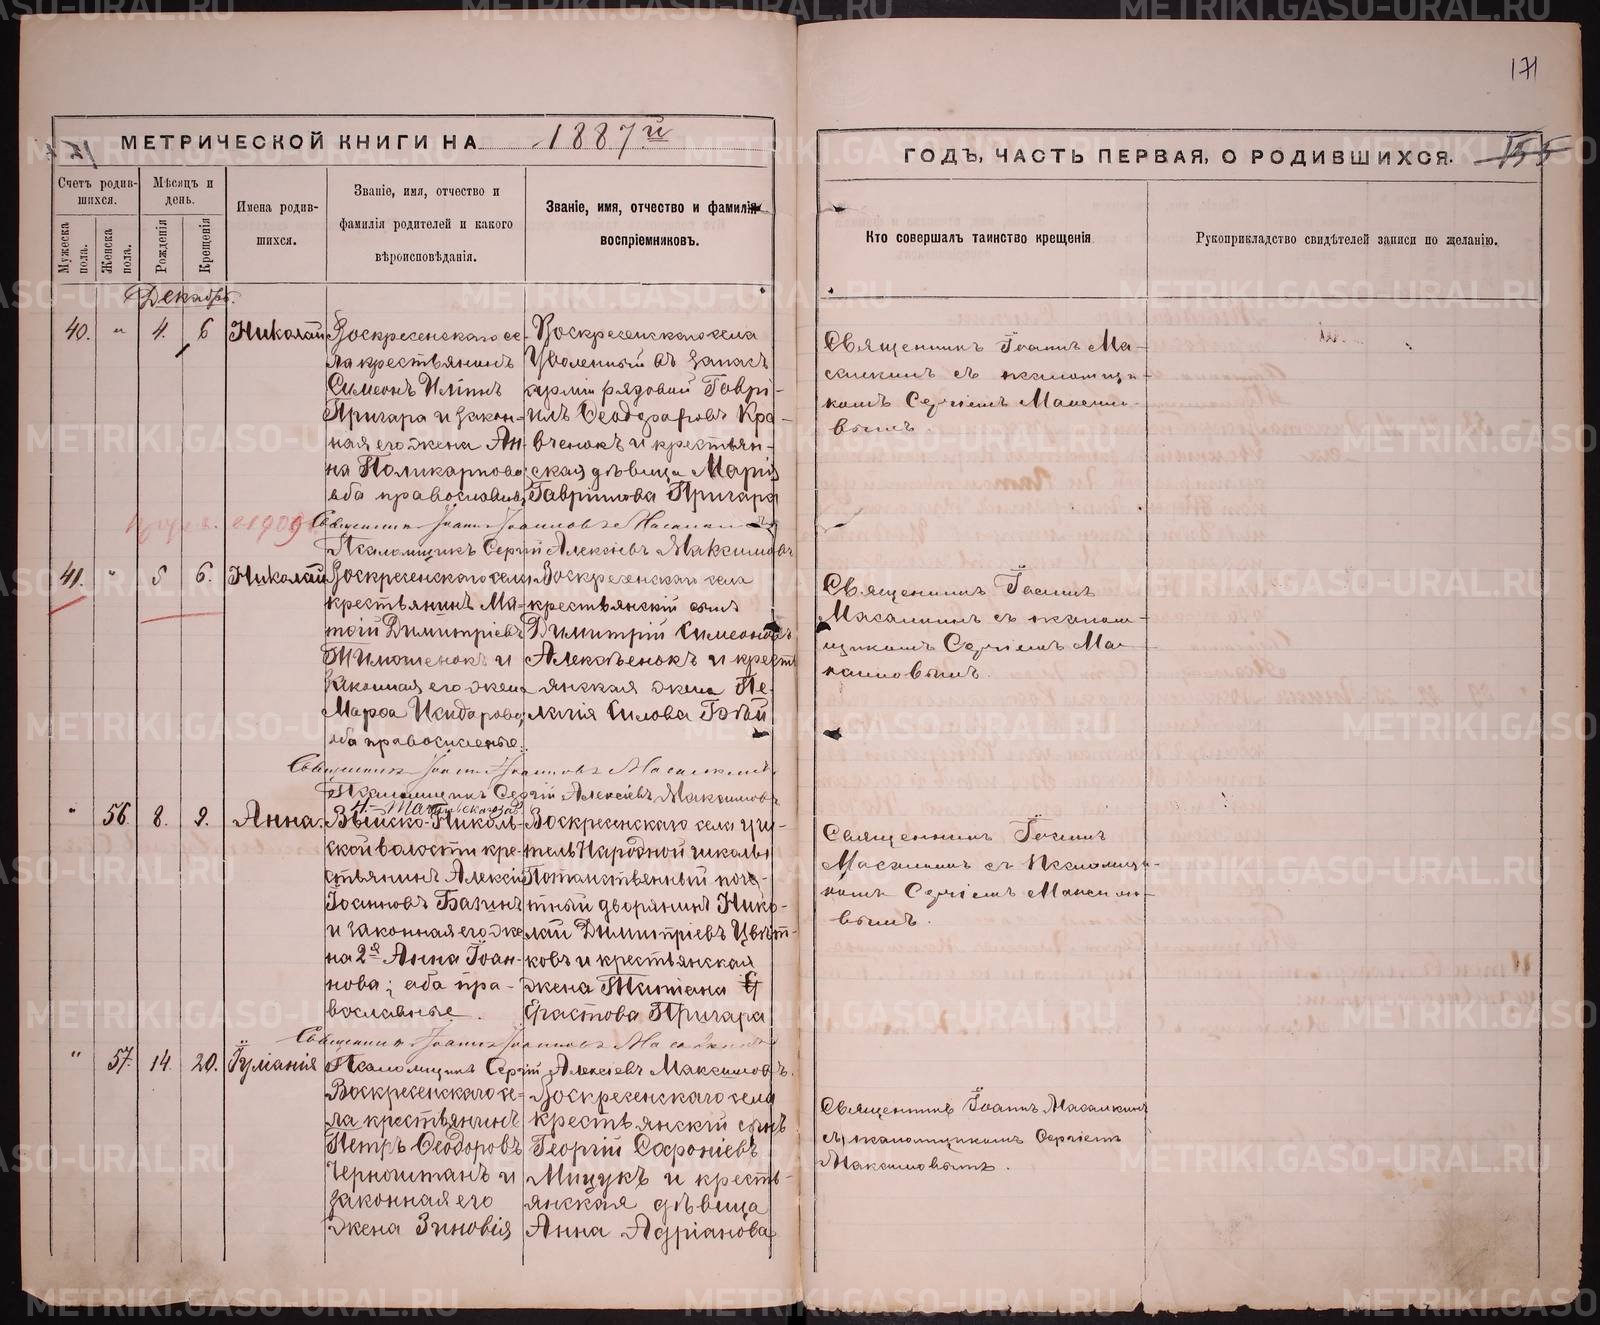 171
МЕТРИЧЕСКОЙ КНИГИ НА 1887й
ГОДЪ, ЧАСТЬ ПЕРВАЯ, О РОДИВШИХСЯ. 155
Счетъ родив-
шихся.
Мужеска
пола.
Женска
пола.
Мѣсяцъ и
день.
Рожденія
Крещенія
Имена родив-
шихся.
Званіе, имя, отчество и
фамилія родителей и какого
вѣроисповѣданія.
Званіе, имя, отчество и фамилія
воспріемниковъ.
Кто совершалъ таинство крещенія
Рукоприкладство свидѣтелей записи по желанію.
Декабрь.
40. " 4. 6 Николай
Воскресенскаго се-
ла крестьянинъ
Симеонъ Иліинъ
Пригара и закон-
ная его жена Ан-
на Поликарпова
оба православные
Воскресенскаго села
Уволенный въ запасъ
арміи рядовой Гаври-
илъ Ѳеодоровъ Кра-
вченокъ и крестьян-
ская дѣвица Марія
Гавріилова Пригара
Священникъ Іоаннъ Ма-
салкинъ съ псаломщи-
комъ Сергіемъ Максимо-
вымъ.
Священникъ Іоаннъ Іоанновъ Масалкинъ
Псаломщикъ Сергій Алексіевъ Максимовъ
41. " 5 6. Николай
Воскресенскаго села
крестьянинъ Ма-
тѳій Димитріевъ
Тимошенокъ и
законная его жена
Марѳа Исидорова
оба православные.
Воскресенскаго села
крестьянскій сынъ
Димитрій Симеоновъ
Алексѣенокъ и крест
янская жена Пе-
лагія Силова
Священникъ Іоаннъ
Масалкинъ съ псалом-
щикомъ Сергіемъ Мак-
симовымъ.
Священникъ Іоаннъ Іоанновъ Масалкинъ
Псаломщикъ Сергій Алексіевъ Максимовъ
" 56. 8. 9. Анна.
Николь-
ской волости кре-
стьянинъ Алексій
Іоанновъ Базинъ
и законная его же
на 2я Анна Іоан-
нова; оба пра-
вославные.
Воскресенскаго села учи-
тель Народной школы
Потомственный поче-
тный дворянинъ Нико-
лай Димитріевъ Цвѣт-
ковъ и крестьянская
жена Татіана
Ерастова Пригара
Священникъ Іоаннъ
Масалкинъ съ Псаломщи-
комъ Сергіемъ Максимо-
вымъ.
Священникъ Іоаннъ Іоанновъ Масалкинъ
Псаломщикъ Сергій Алексіевъ Максимовъ.
" 57. 14. 20. Іуліанія
Воскресенскаго се-
ла крестьянинъ
Петръ Ѳеодоровъ
Черноштанъ и
законная его
жена Зиновія
Воскресенскаго села
крестьянскій сынъ
Георгій Софроніевъ
Мицукъ и кресть-
янская дѣвица
Анна Адріанова
Священникъ Іоаннъ Масалкинъ
съ псаломщикомъ Сергіемъ
Максимовымъ.
METRIKI.GASO-URAL.RU